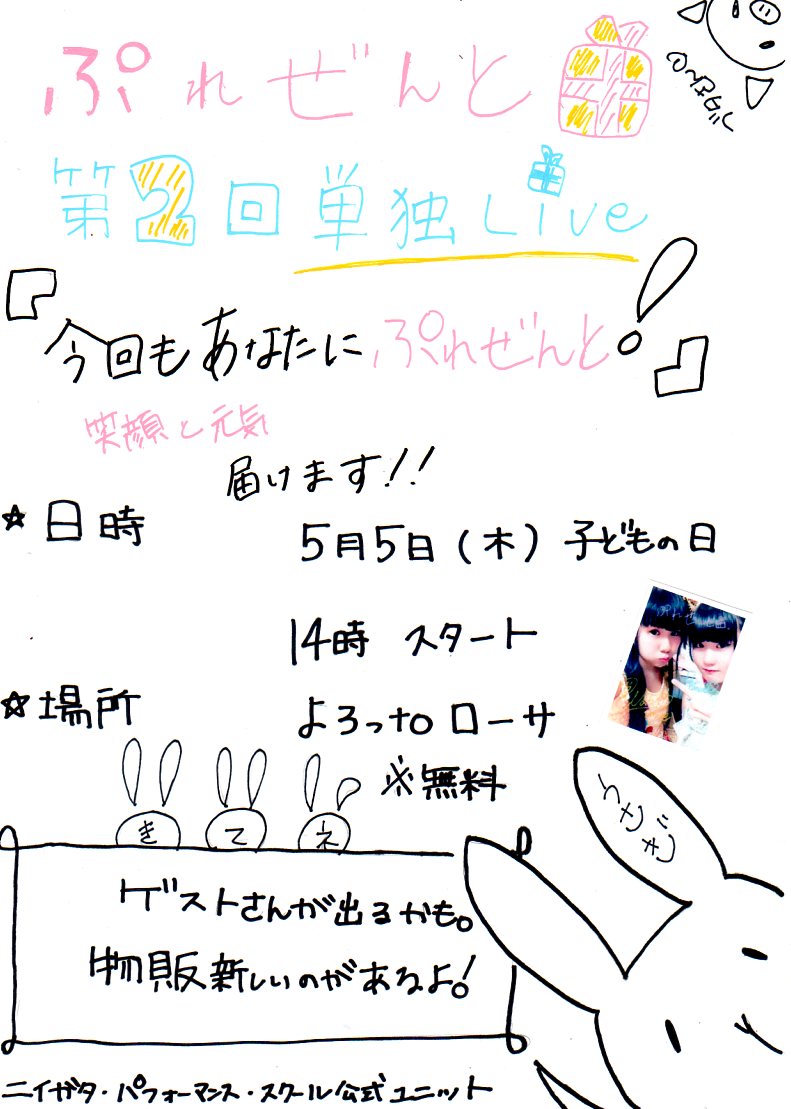 ぷれぜんと
第2回単独Live
『今回もあなたにぷれぜんと!』
笑顔と元気
届けます!!
☆日時 5月5日(木)子どもの日
14時 スタート
☆場所 よろっtoローサ
※無料
きてネ
ゲストさんが出るかも。
物販新しいのがあるよ!
うさぎ
ニイガタ・パフォーマンス・スクール公式ユニット